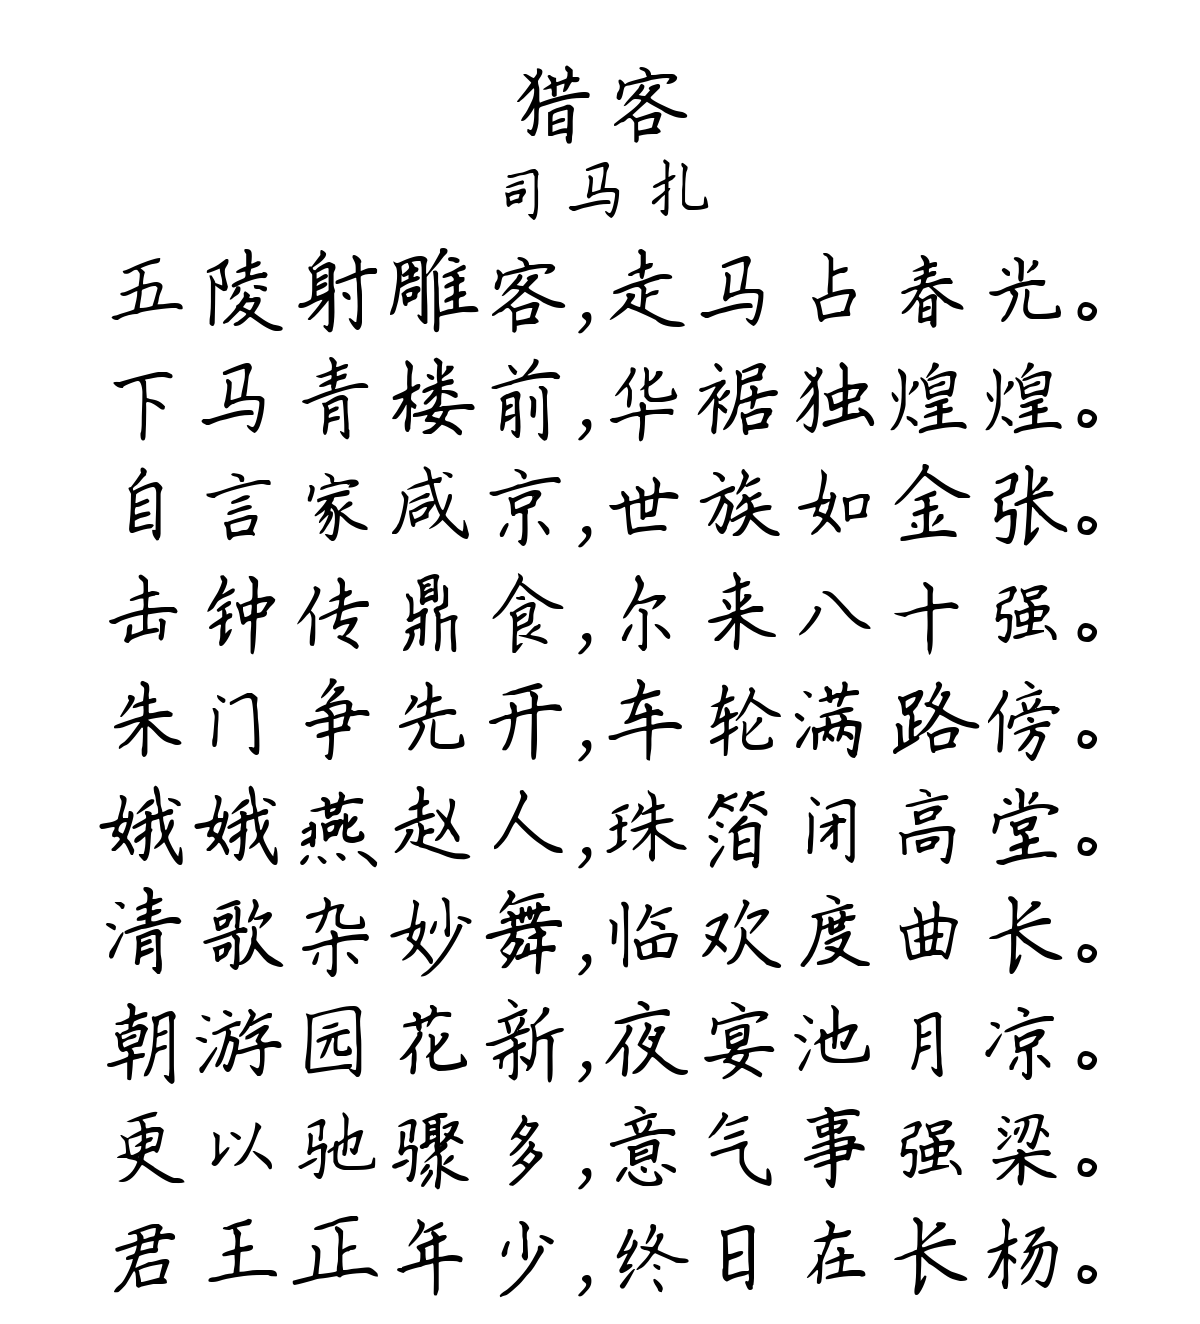 猎客
司马扎
五陵射雕客,走马占春光。
下马青楼前,华裾独煌煌。
自言家咸京,世族如金张。
击钟传鼎食,尔来八十强。
朱门争先开,车轮满路傍。
娥娥燕赵人,珠箔闭高堂。
清歌杂妙舞,临欢度曲长。
朝游园花新,夜宴池月凉。
更以驰骤多,意气事强梁。
君王正年少,终日在长杨。